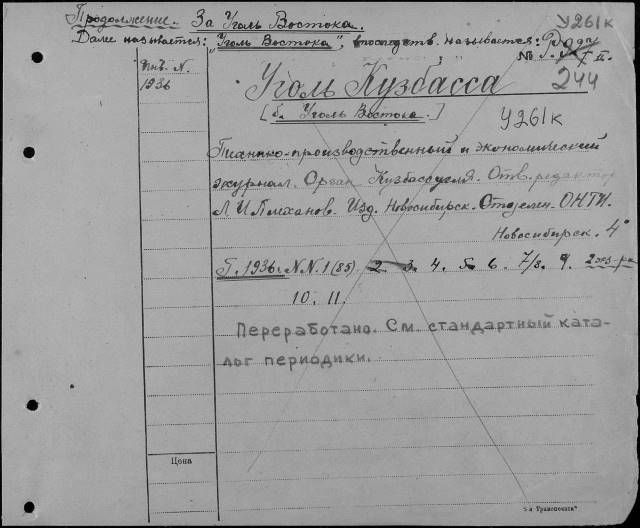 Продолжение. За Уголь Востока. У261к
Далее называется: "Уголь Востока", впоследств. называется: Руда
№
244
Инв. N.
1936
Уголь Кузбасса
[б. Уголь Востока.]
У261к
Технико-производственный и экономический
журнал. Орган Кузбассугля. Отв. редактор
Л. И. Плеханов. Изд. Новосибирск. Отделен. ОНТИ.
Новосибирск. 4°
Г. 1936. N.N. 1 (85). 2 3. 4. 5 6. 7/8. 9. 2 экз-ра
10. 11.
Переработано. См. стандартный ката-
лог периодики.
Цена